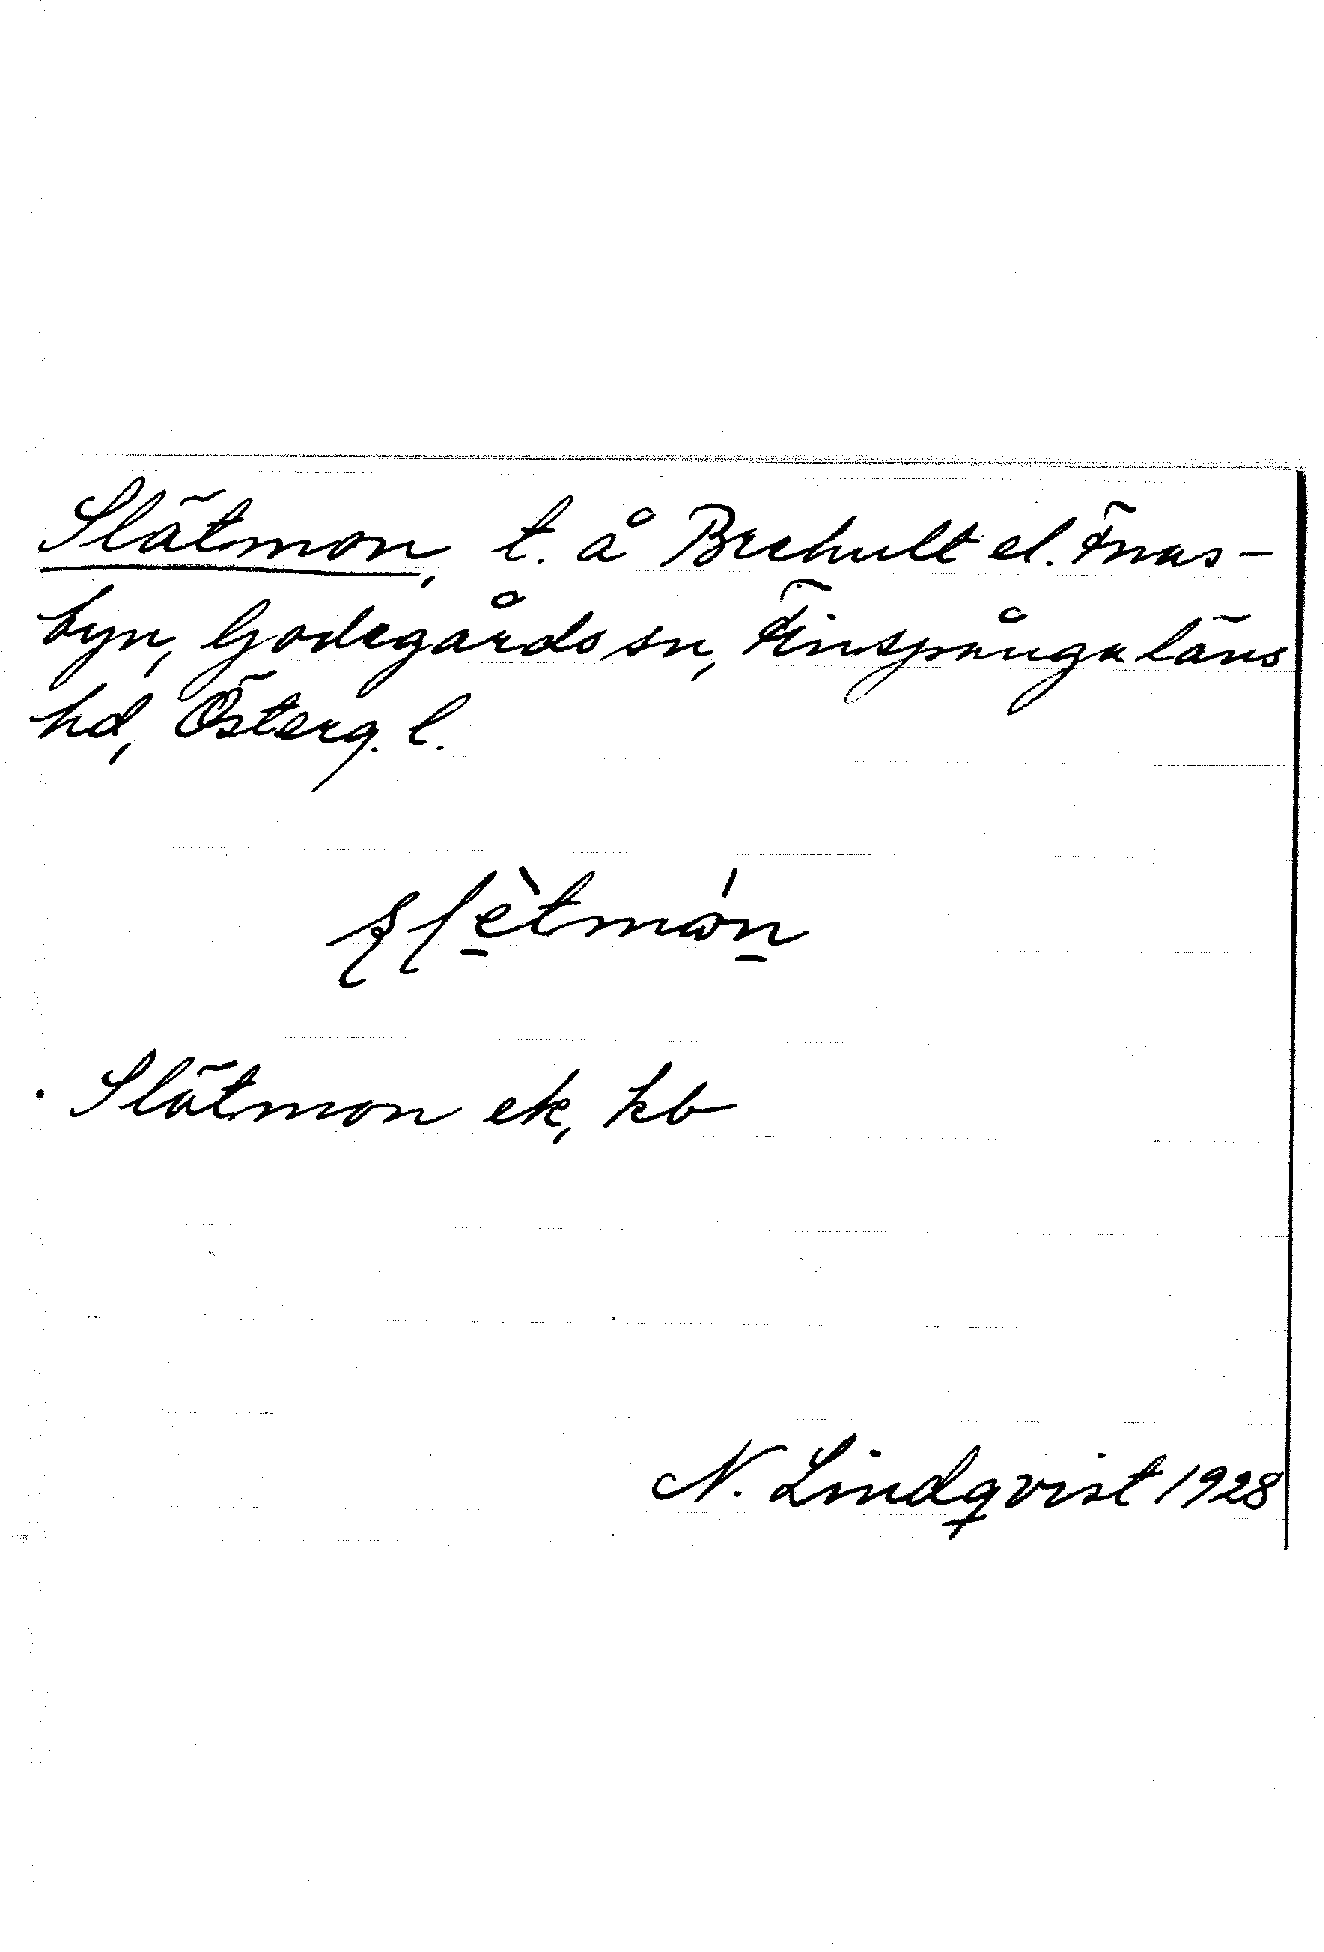 Slätmon, t. å Brehult el. Fnas-
byn, Godegårds sn, Finspånga läns
hd, Österg. l.
Slätmon ek, kb
N. Lindqvist 1928